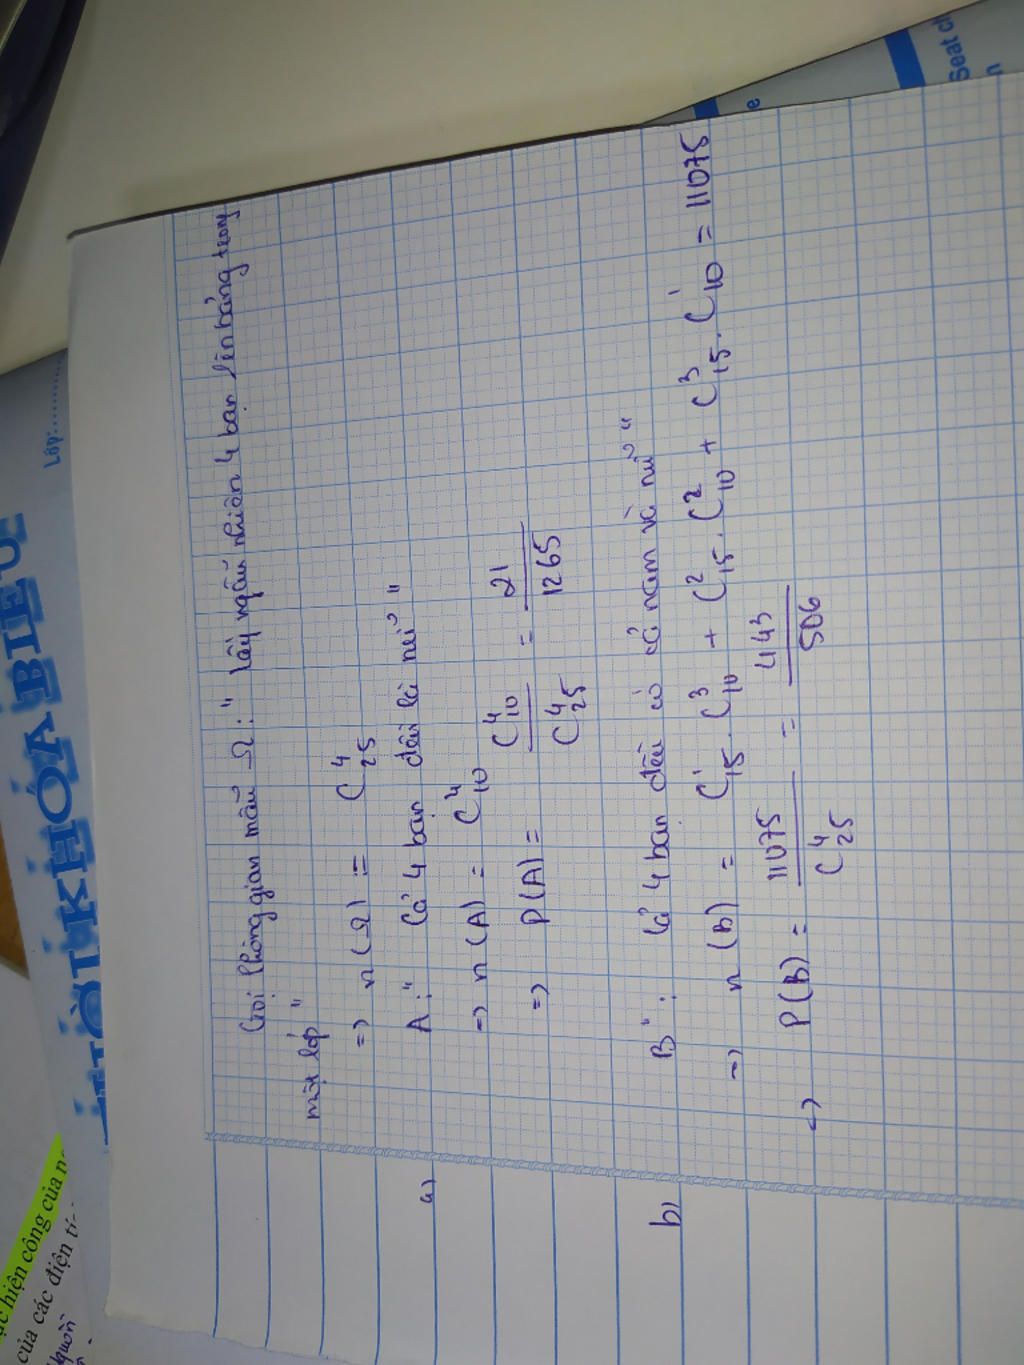 Gọi không gian mẫu Ω: " lấy ngẫu nhiên 4 bạn lên bảng trong
một lớp "
=> n (Ω) = C⁴₂₅
a) A: " Cả 4 bạn đều là nữ "
=> n (A) = C⁴₁₀
=> P(A) = C⁴₁₀ / C⁴₂₅ = 21 / 1265
b) B": Cả 4 bạn đều có cả nam và nữ "
=> n (B) = C¹₁₅ . C³₁₀ + C²₁₅ . C²₁₀ + C³₁₅ . C¹₁₀ = 11075
=> P(B) = 11075 / C⁴₂₅ = 443 / 506
THỜI KHÓA BIỂU
Lớp:..........
hiện công của
của các điện
Nguồn
Seat